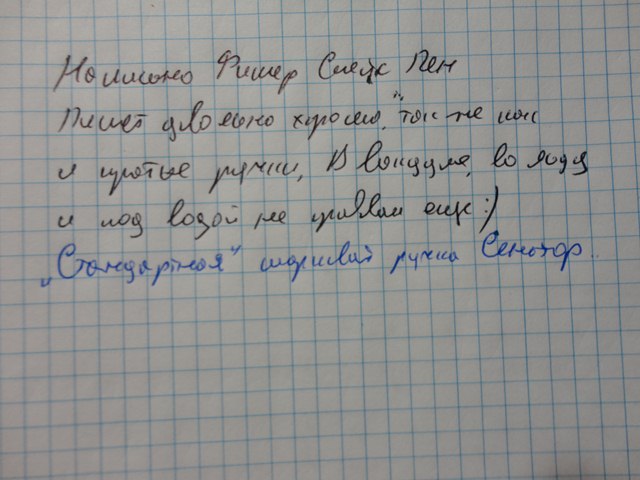 Написано Фишер Спейс Пен
Пишет довольно хорошо, так-же как
и простые ручки, В вакууме, во льду
и под водой не пробовал еще :)
„Стандартная" шариковая ручка Сенатор.